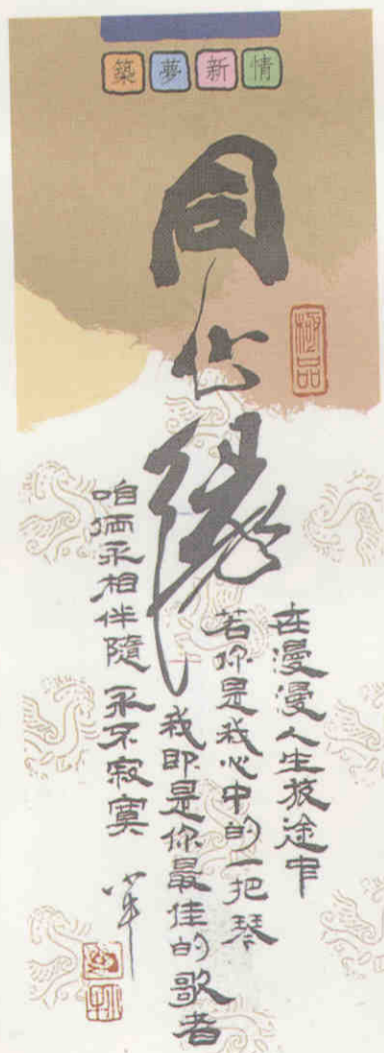 築夢新情
同心緣
極品
在漫漫人生旅途中
若你是我心中的一把琴
我即是你最佳的歌者
咱倆永相伴隨 永不寂寞